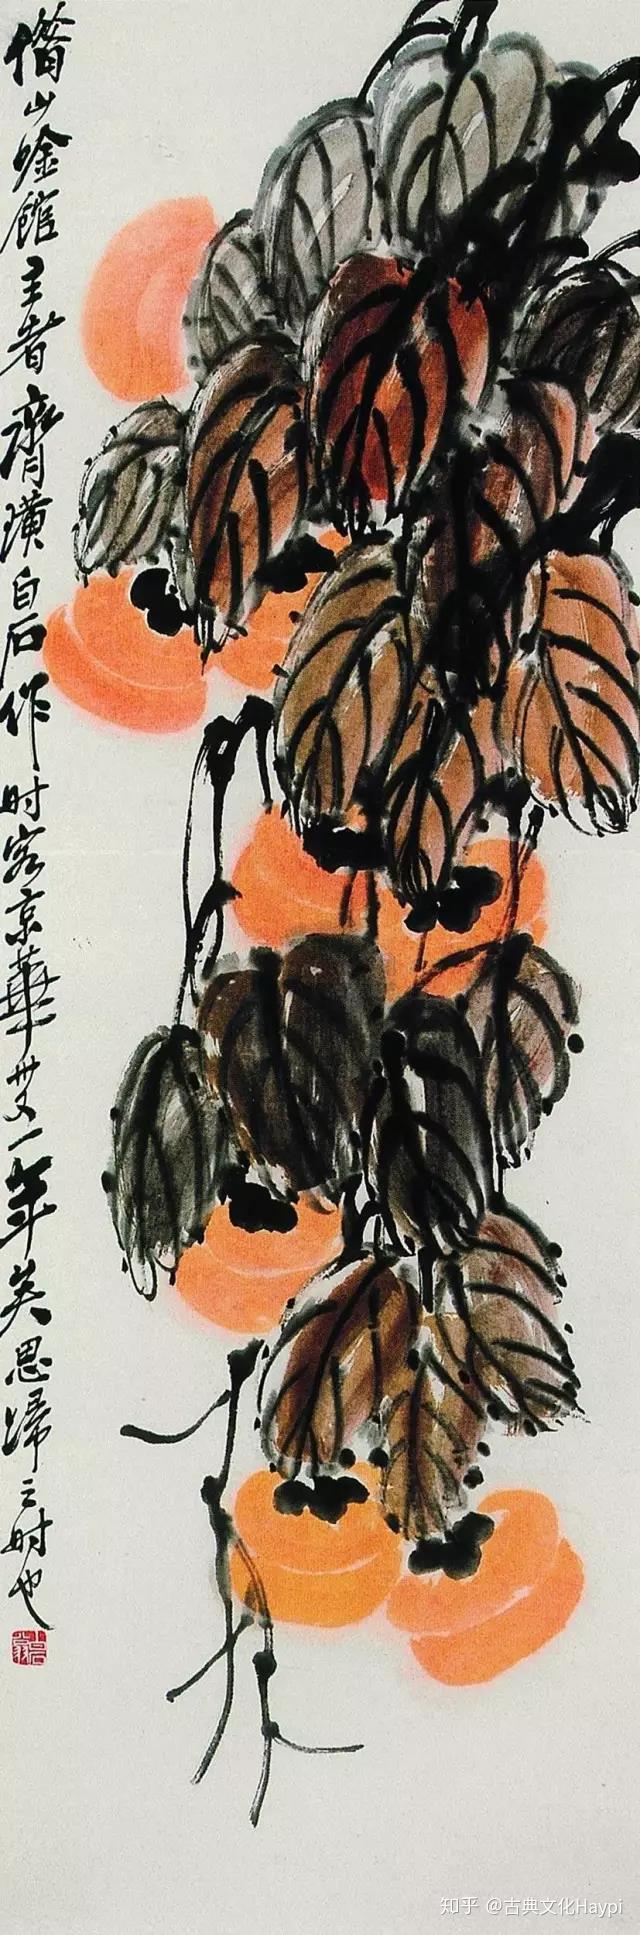 借山唫館主者齊璜白石作时客京華廿又一年矣思歸之时也
白石翁
知乎 @古典文化Haypi